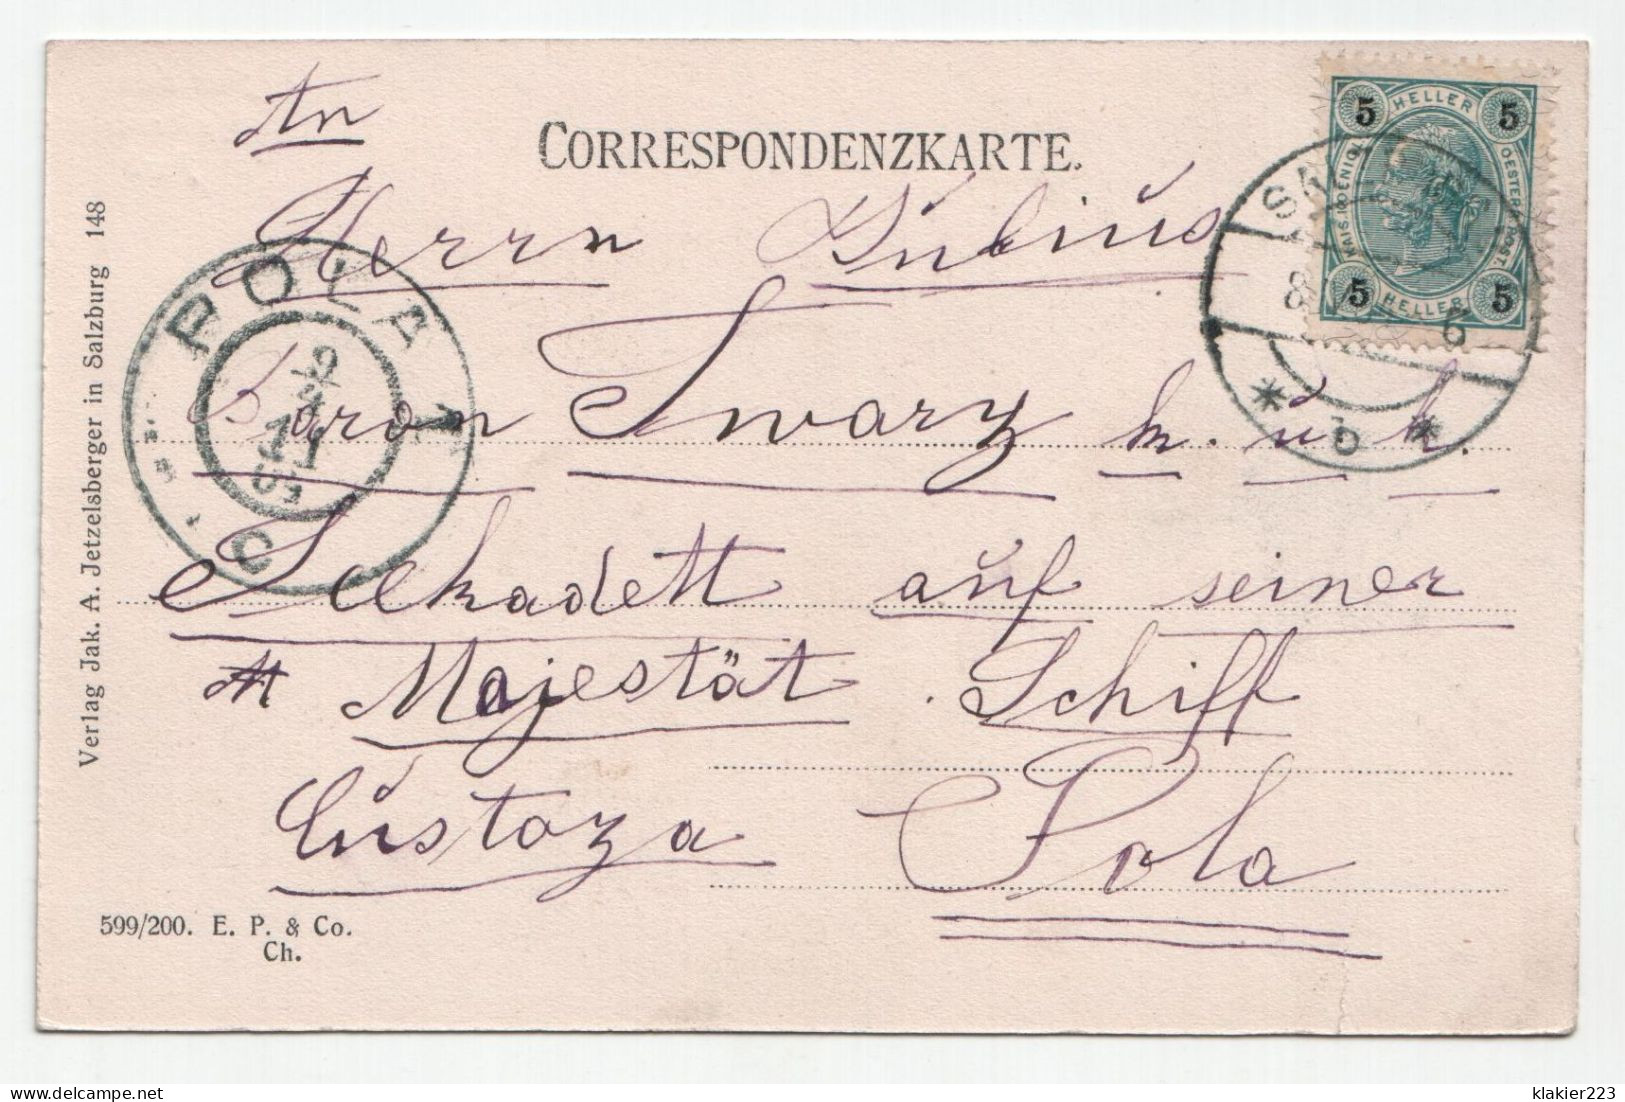 CORRESPONDENZKARTE.
An
Herrn Julius
Baron Swarz k. u. k.
Seekadett auf seiner
Majestät Schiff
Custoza Pola
Verlag Jak. A. Jetzelsberger in Salzburg 148
599/200. E. P. & Co.
Ch.
5 HELLER 5
KAIS. KOENIGL. OESTERR. POST.
5 HELLER 5
POLA 1
9/4
11
C
8
6
* b *
klakier223